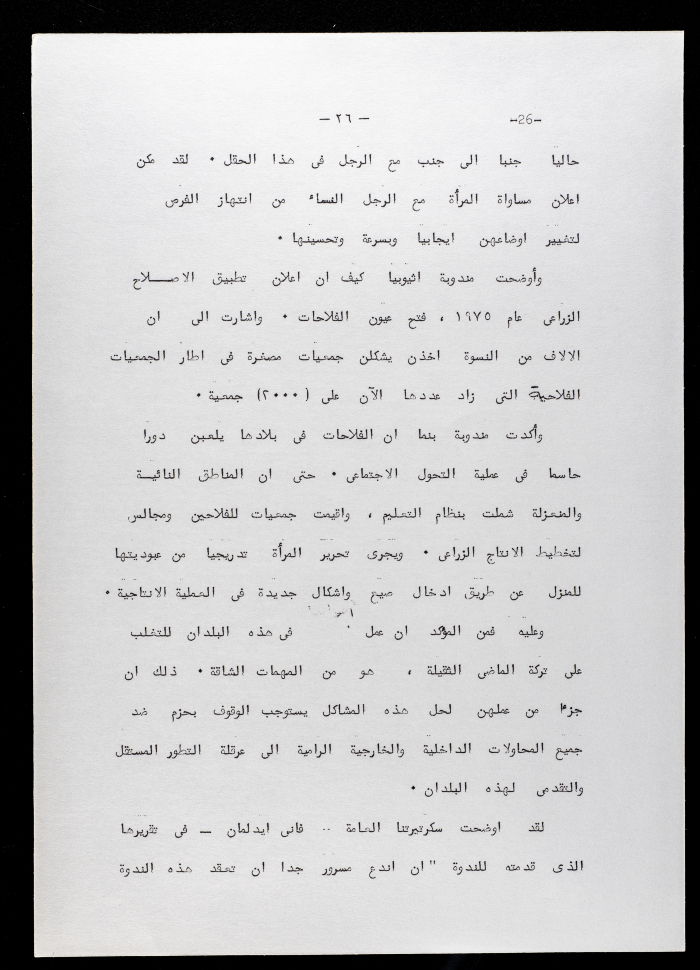 -26- — ٢٦ —
حاليا جنبا الى جنب مع الرجل فى هذا الحقل . لقد مكن
اعلان مساواة المرأة مع الرجل النساء من انتهاز الفرص
لتغيير اوضاعهن ايجابيا وبسرعة وتحسينها .
وأوضحت مندوبة اثيوبيا كيف ان اعلان تطبيق الاصـــلاح
الزراعى عام ١٩٧٥ ، فتح عيون الفلاحات . واشارت الى ان
الالاف من النسوة اخذن يشكلن جمعيات مصغرة فى اطار الجمعيات
الفلاحية التى زاد عددها الآن على (٢٠٠٠) جمعية .
وأكدت مندوبة بنما ان الفلاحات فى بلادها يلعبن دورا
حاسما فى عملية التحول الاجتماعى . حتى ان المناطق النائيـة
والمنعزلة شملت بنظام التعليم ، واقيمت جمعيات للفلاحين ومجالس
لتخطيط الانتاج الزراعى . ويجرى تحرير المرأة تدريجيا من عبوديتها
للمنزل عن طريق ادخال صيغ واشكال جديدة فى العملية الانتاجية .
وعليه فمن المؤكد ان عمل فى هذه البلدان للتغلب
على تركة الماضى الثقيلة ، هو من المهمات الشاقة . ذلك ان
جزءا من عملهن لحل هذه المشاكل يستوجب الوقوف بحزم ضد
جميع المحاولات الداخلية والخارجية الرامية الى عرقلة التطور المستقل
والتقدمى لهذه البلدان .
لقد اوضحت سكرتيرتنا العامة .. فانى ايدلمان ــ فى تقريرها
الذى قدمته للندوة "ان اندع مسرور جدا ان تعقد هذه الندوة